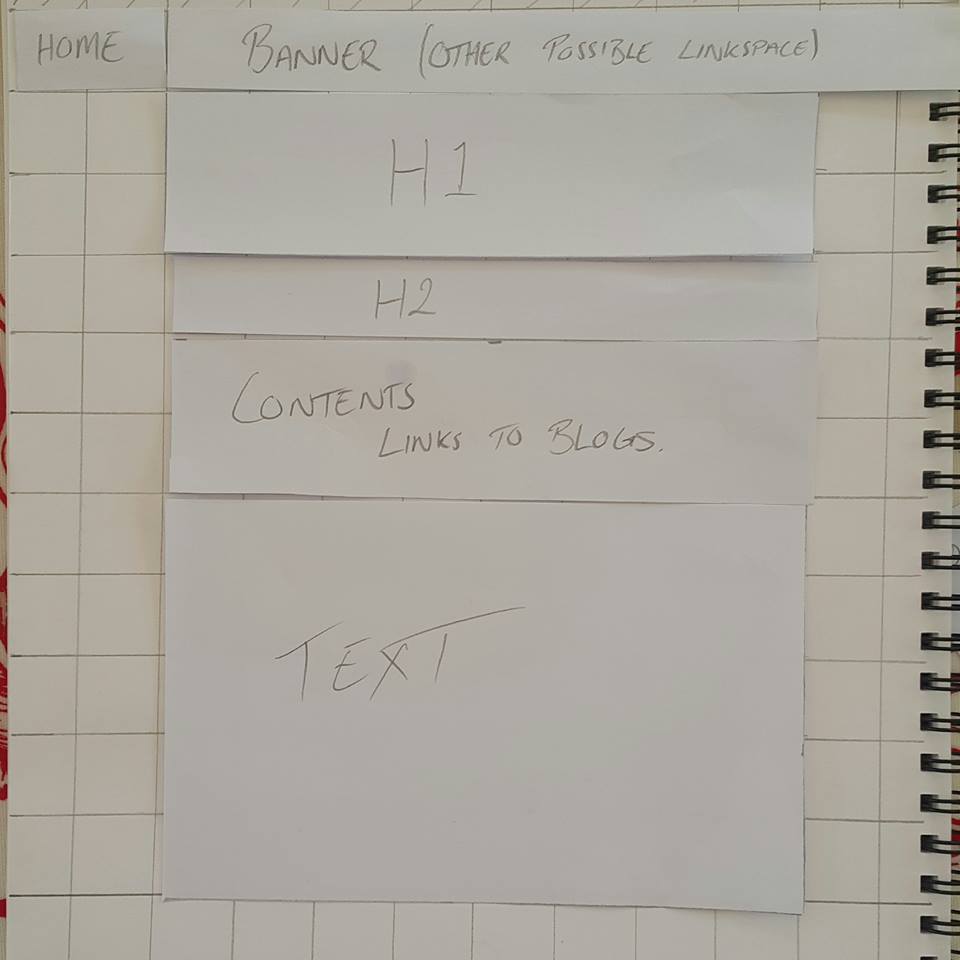 HOME
BANNER (OTHER POSSIBLE LINKSPACE)
H1
H2
CONTENTS
LINKS TO BLOGS.
TEXT